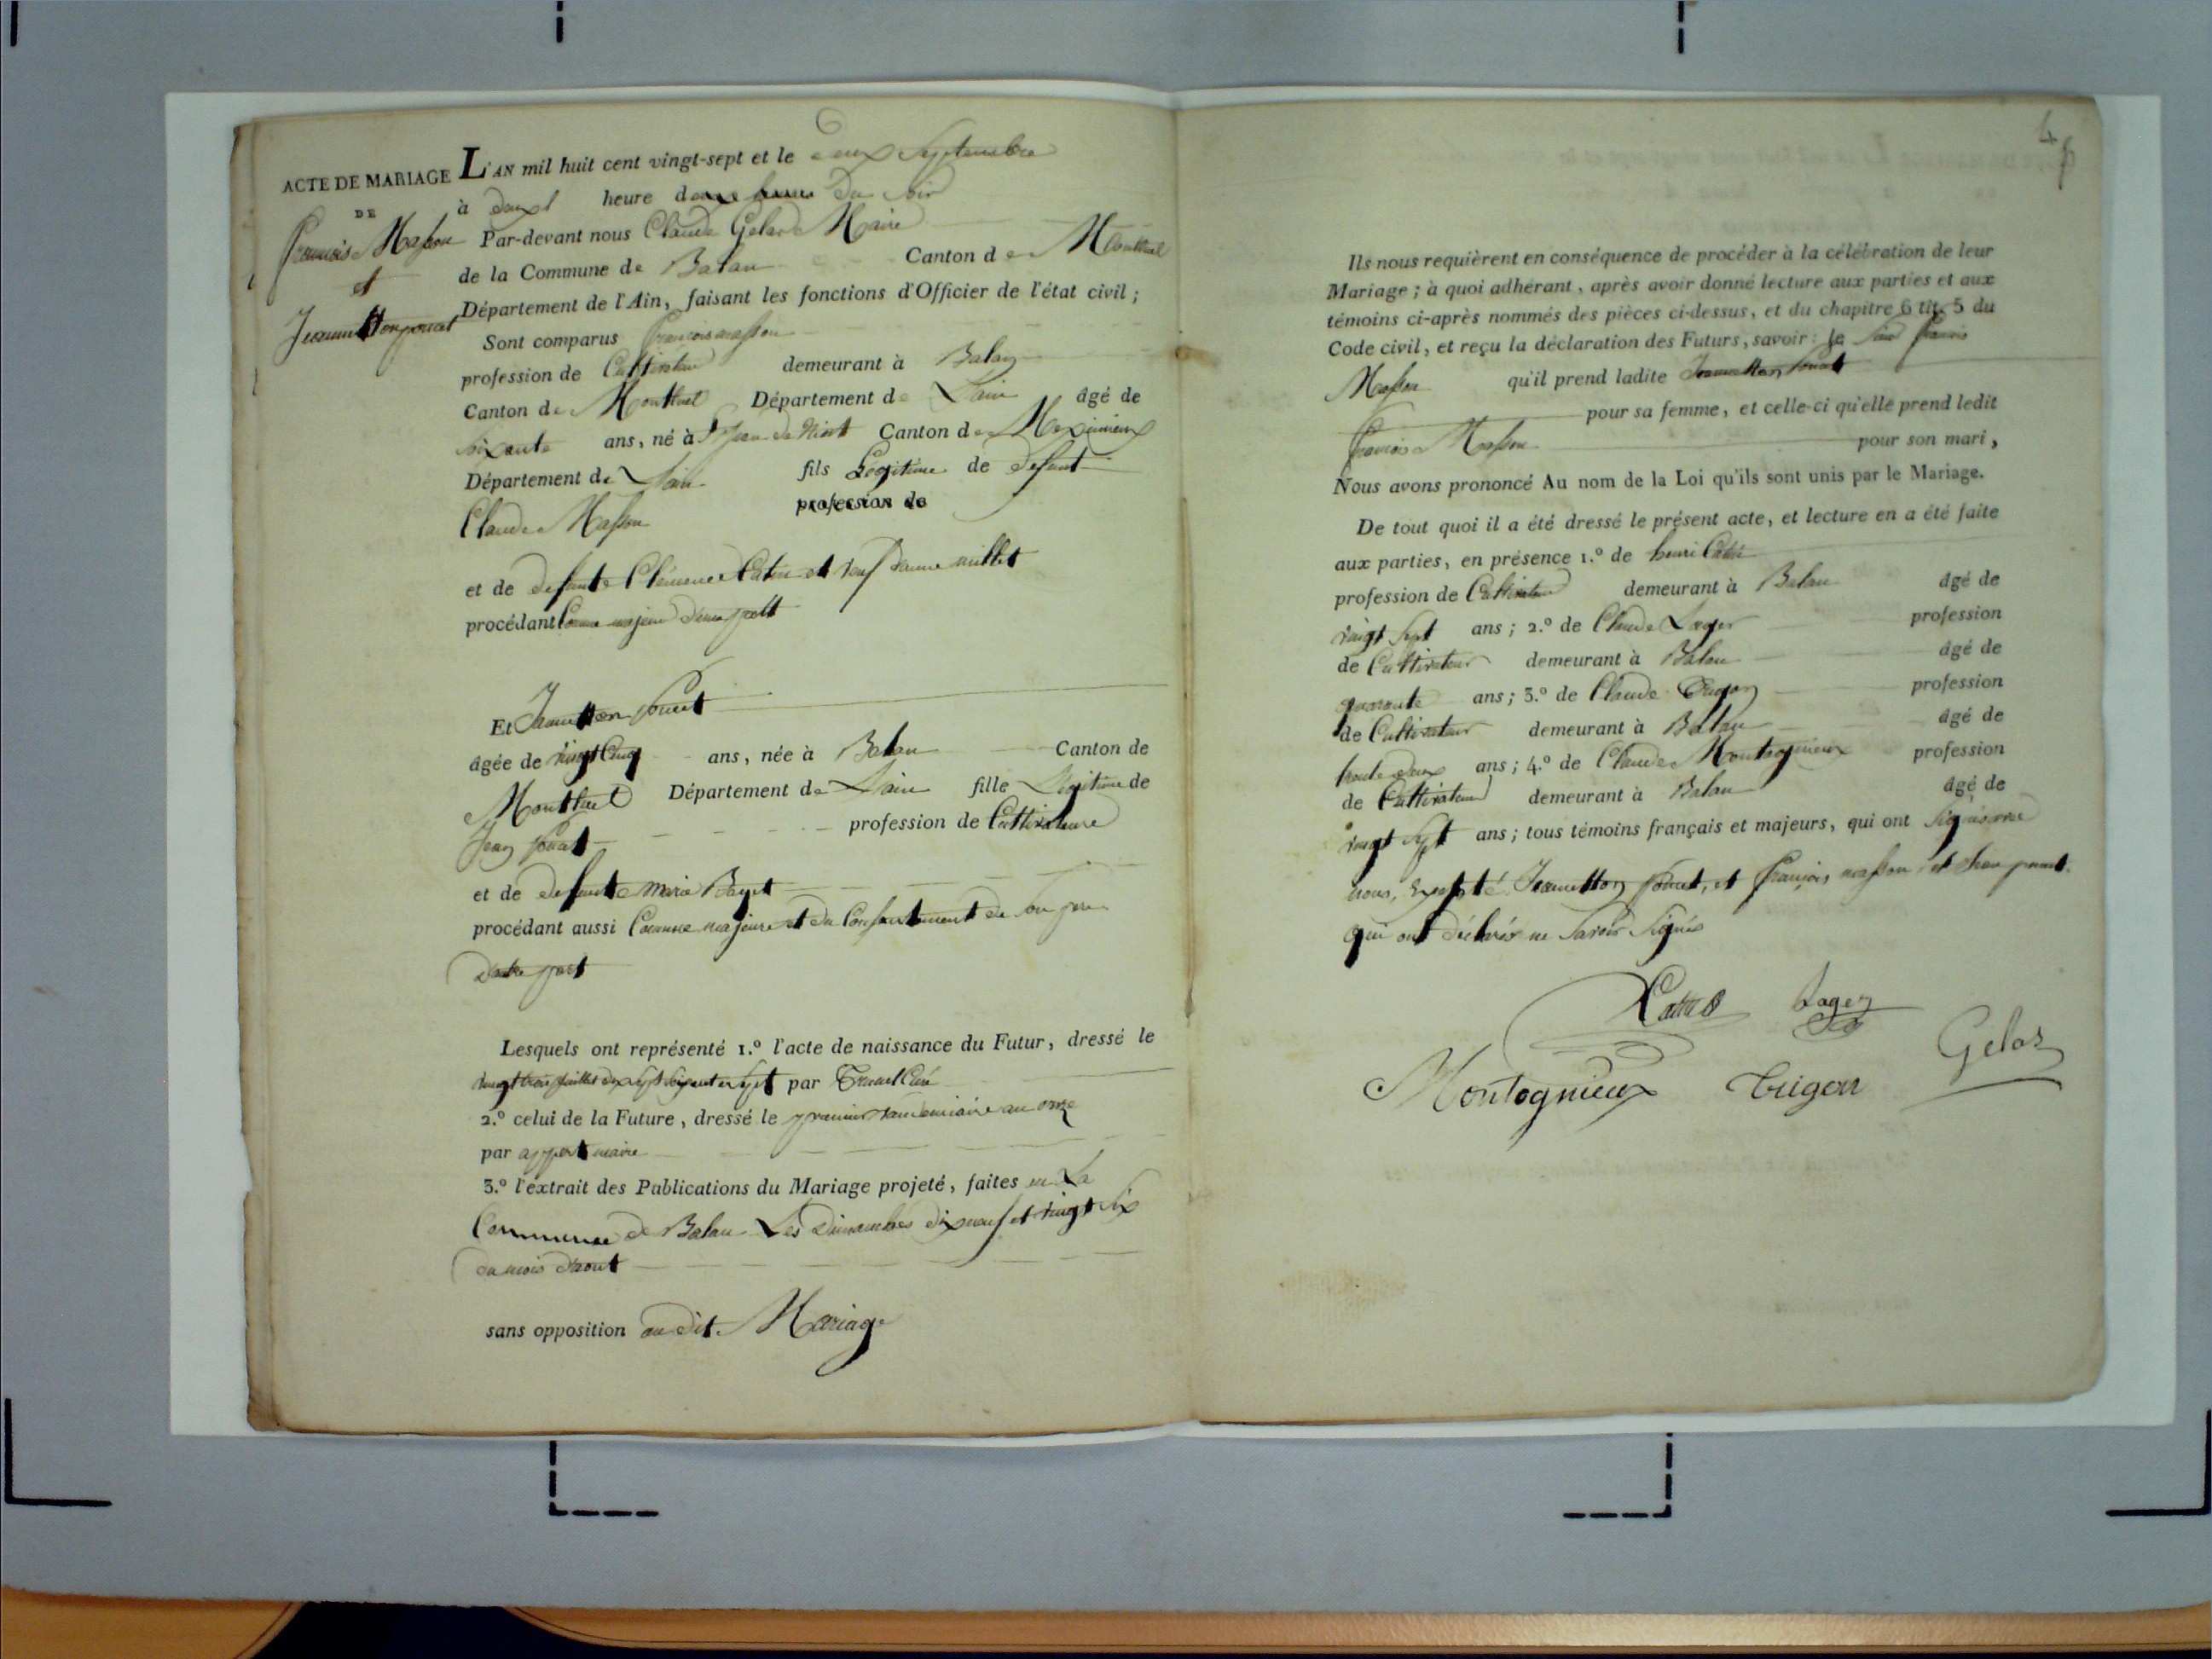 ACTE DE MARIAGE
DE
François Masson
et
Jeannetton pouat
L'AN mil huit cent vingt-sept et le deux Septembre
à deux heure du soir
Par-devant nous Claude Gelas Maire
de la Commune de Balan Canton de Montluel
Département de l'Ain, faisant les fonctions d'Officier de l'état civil;
Sont comparus françois masson
profession de Cultivateur demeurant à Balan
Canton de Montluel Département de Lain âgé de
soixante ans, né à St Jean de Niost Canton de Meximieux
Département de Lain fils Légitime de defunt
Claude Masson profession de
et de defunte Clémence et veuf Jeanne millet
procédant Comme majeur d'une part
Et Jeannetton pouat
âgée de vingt Cinq ans, née à Balan Canton de
Montluel Département de Lain fille Légitime de
Jean pouat profession de Cultivateur
et de defunte marie
procédant aussi Comme majeure et du Consentement de son pere
Dautre part
Lesquels ont représenté 1.º l'acte de naissance du Futur, dressé le
vingt trois juillet dix sept soixante sept par Curé
2.º celui de la Future, dressé le premier vandemiaire an onze
par appert maire
3.º l'extrait des Publications du Mariage projeté, faites en La
Commune de Balan Les Dimanches dix neuf et vingt six
du mois d'aout
sans opposition au dit Mariage
Ils nous requièrent en conséquence de procéder à la célébration de leur
Mariage; à quoi adhérant, après avoir donné lecture aux parties et aux
témoins ci-après nommés des pièces ci-dessus, et du chapitre 6 tit. 5 du
Code civil, et reçu la déclaration des Futurs, savoir: le
Masson qu'il prend ladite Jeannetton pouat
pour sa femme, et celle-ci qu'elle prend ledit
François Masson pour son mari,
Nous avons prononcé Au nom de la Loi qu'ils sont unis par le Mariage.
De tout quoi il a été dressé le présent acte, et lecture en a été faite
aux parties, en présence 1.º de henri
profession de Cultivateur demeurant à Balan âgé de
vingt sept ans; 2.º de Claude Lager profession
de Cultivateur demeurant à Balan âgé de
quarante ans; 3.º de Claude Trigon profession
de Cultivateur demeurant à Balan âgé de
trente deux ans; 4.º de Claude Montagnieux profession
de Cultivateur demeurant à Balan âgé de
vingt sept ans; tous témoins français et majeurs, qui ont signés avec
nous, Excepté Jeannetton pouat, et françois masson, et Jean pouat
qui ont déclarés ne savoir signés
Lager
Gelas
Montagnieux Trigon